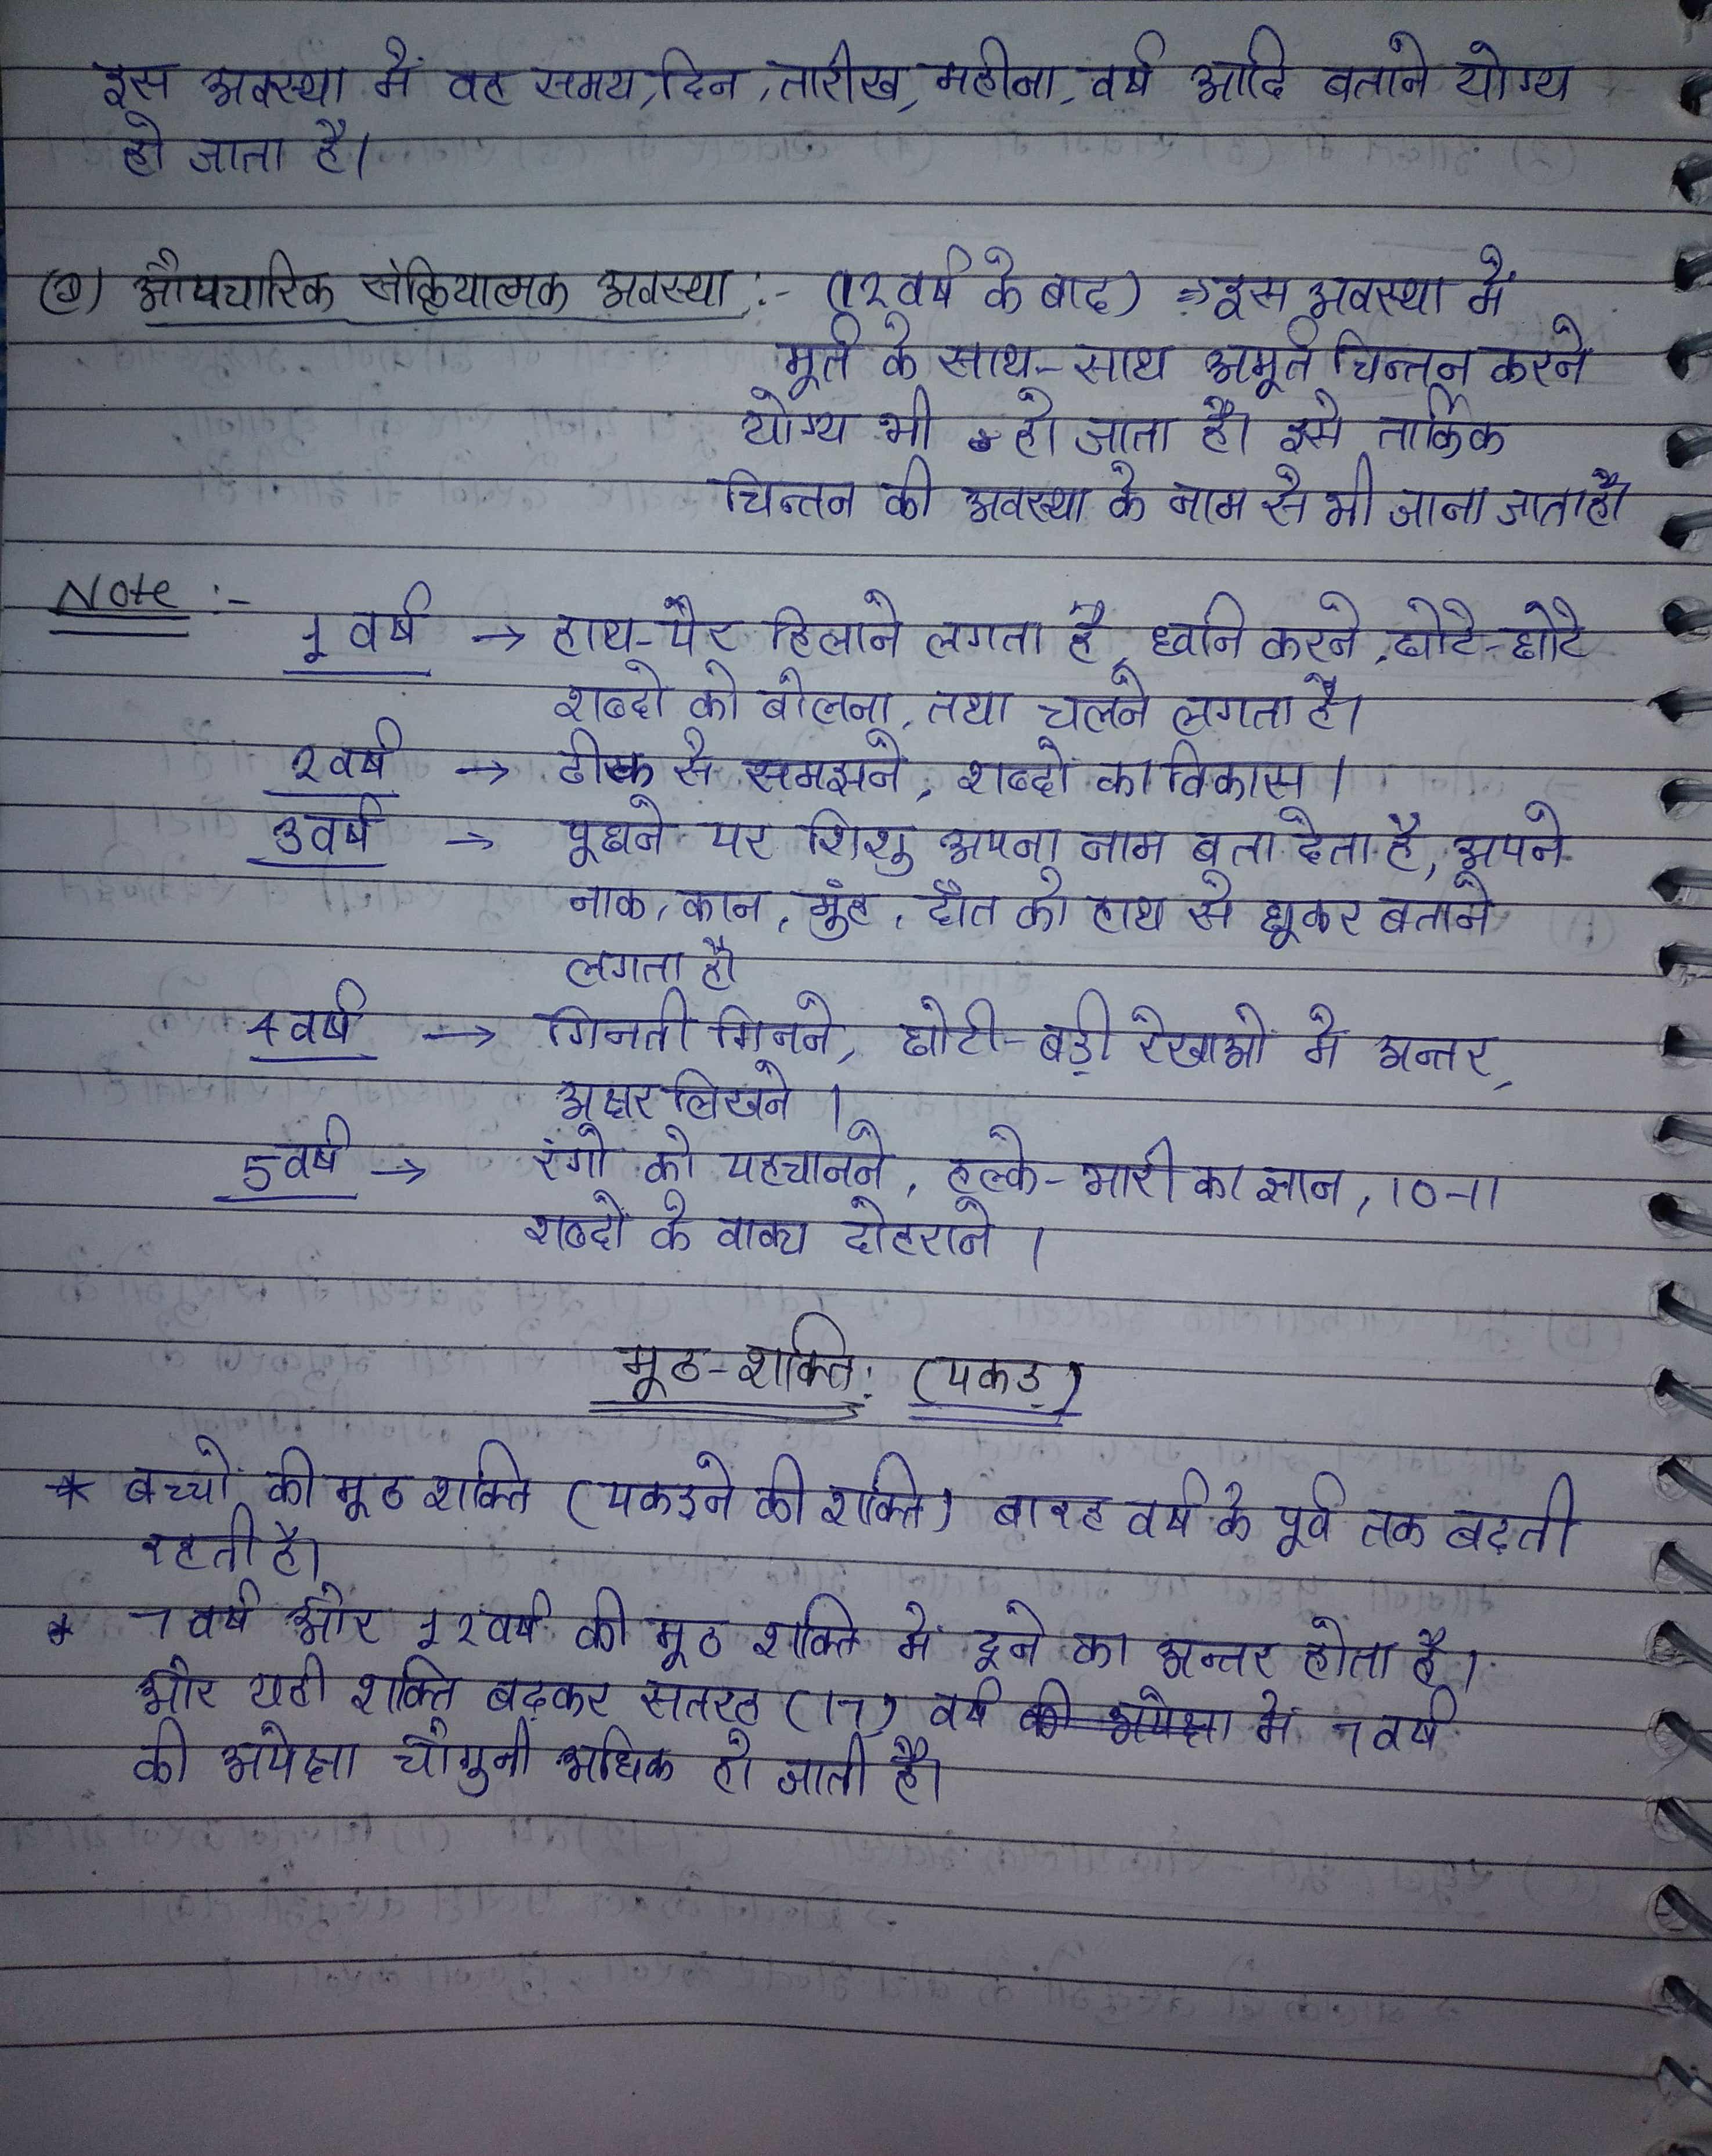 इस अवस्था में वह समय, दिन, तारीख, महीना, वर्ष आदि बताने योग्य
हो जाता है।
औपचारिक संक्रियात्मक अवस्था :- (12 वर्ष के बाद) ⇒ इस अवस्था में
मूर्त के साथ-साथ अमूर्त चिन्तन करने
योग्य भी हो जाता है। इसे तार्किक
चिन्तन की अवस्था के नाम से भी जाना जाता है।
Note :-
1 वर्ष → हाथ-पैर हिलाने लगता है, ध्वनि करने, छोटे-छोटे
शब्दो को बोलना, तथा चलने लगता है।
2 वर्ष → ठीक से समझने, शब्दों का विकास।
3 वर्ष → पूछने पर शिशु अपना नाम बता देता है, अपने
नाक, कान, मुंह, दाँत को हाथ से छूकर बताने
लगता है।
4 वर्ष → गिनती गिनने, छोटी-बड़ी रेखाओ मे अन्तर,
अक्षर लिखने।
5 वर्ष → रंगो को पहचानने, हल्के-भारी का ज्ञान, 10-11
शब्दों के वाक्य दोहराने।
मूठ-शक्ति: (पकड़)
* बच्चो की मूठ शक्ति (पकड़ने की शक्ति) बारह वर्ष के पूर्व तक बढ़ती
रहती है।
* 7 वर्ष और 12 वर्ष की मूठ शक्ति में दूने का अन्तर होता है।
और यही शक्ति बढ़कर सतरह (17) वर्ष की अपेक्षा मे 7 वर्ष
की अपेक्षा चौगुनी अधिक हो जाती है।